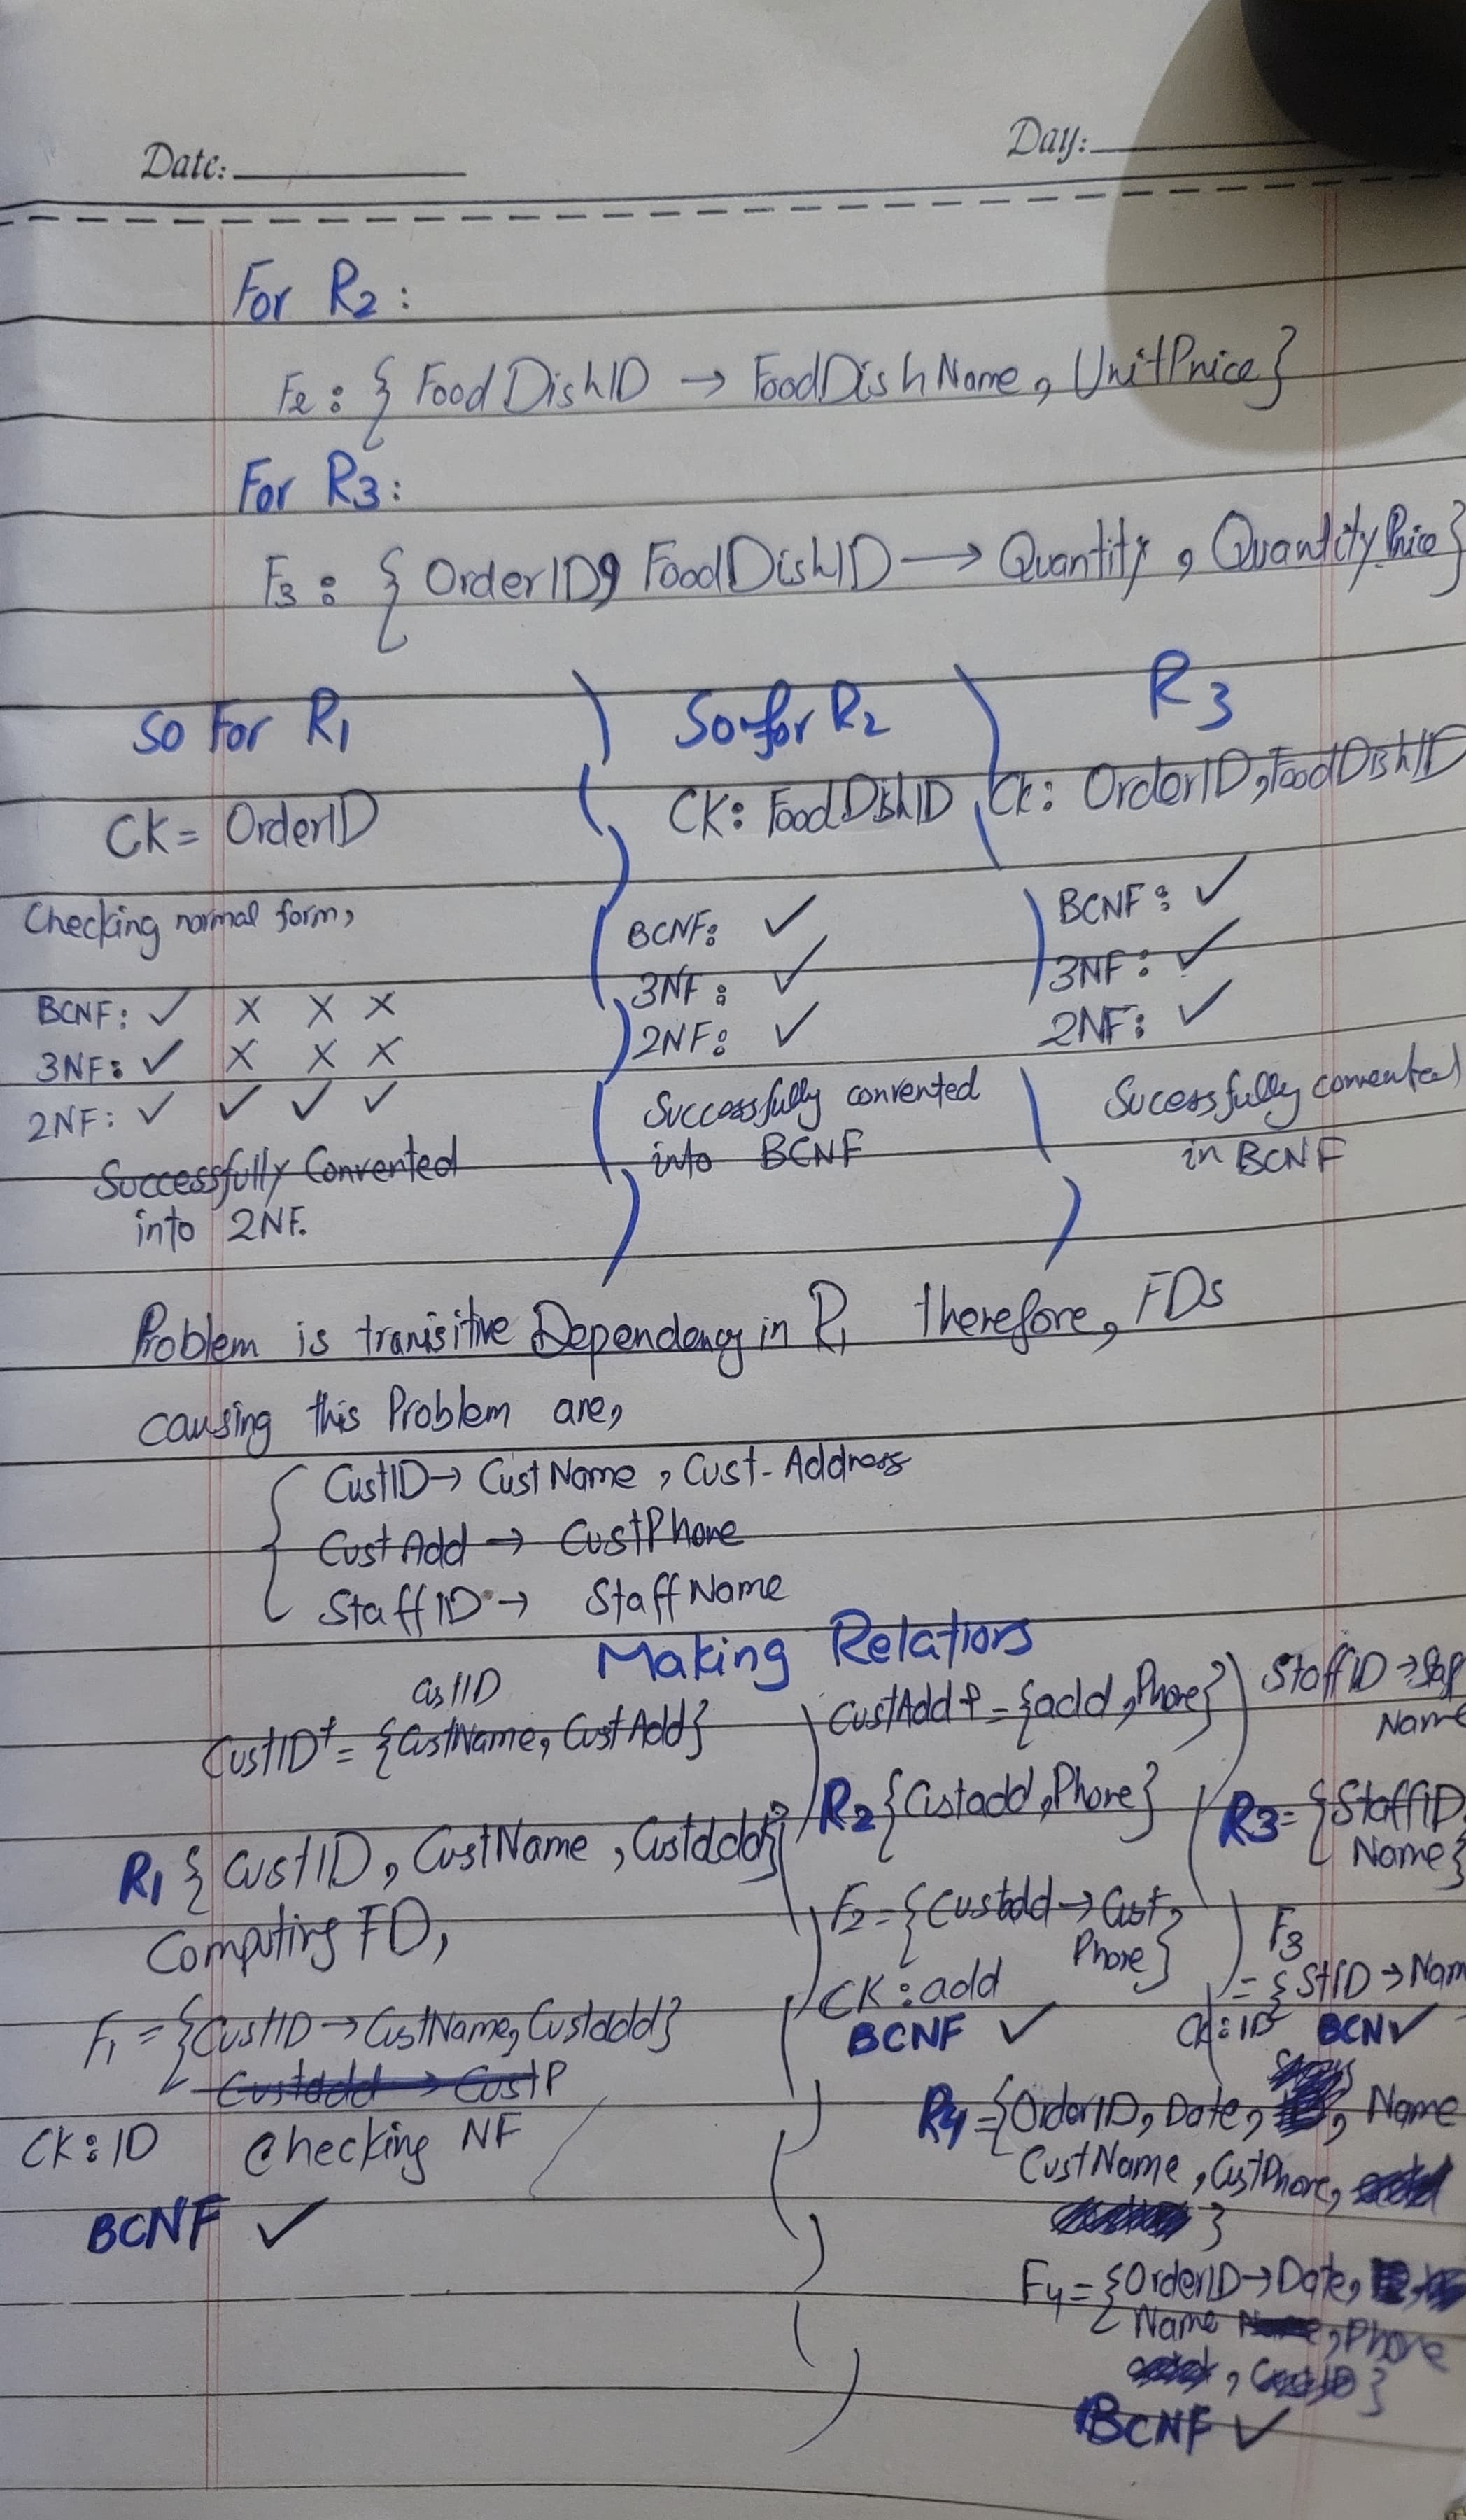 Date: Day:
For R2:
F2: { FoodDishID → FoodDishName, UnitPrice}
For R3:
F3: { OrderID, FoodDishID → Quantity, QuantityPrice}
So For R1
CK= OrderID
Checking normal form,
BCNF: ✓ X X X
3NF: ✓ X X X
2NF: ✓ ✓ ✓ ✓
Successfully Converted
into 2NF.
So for R2
CK: FoodDishID
BCNF: ✓
3NF: ✓
2NF: ✓
Successfully converted
into BCNF
R3
CK: OrderID, FoodDishID
BCNF: ✓
3NF: ✓
2NF: ✓
Sucessfully converted
in BCNF
Problem is transitive Dependency in R1 therefore, FDs
causing this Problem are,
CustID → CustName, Cust-Address
CustAdd → CustPhone
StaffID → StaffName
Making Relations
CustID
CustID+ = {CustName, CustAdd}
R1 { CustID, CustName, Custadd}
Computing FD,
F1 = {CustID → CustName, Custadd}
Custadd → CustP
CK: ID Checking NF
BCNF ✓
CustAdd+ = {add, Phone}
R2 {Custadd, Phone}
F2 = {Custadd → Cust
Phone}
CK: add
BCNF ✓
StaffID → Staf
Name
R3= {StaffID,
Name}
F3
= {StID → Nam
CK: ID BCN ✓
R4 = {OrderID, Date, , Name
CustName, CustPhone,
}
F4 = {OrderID → Date,
Name , Phone
, CustID }
BCNF ✓